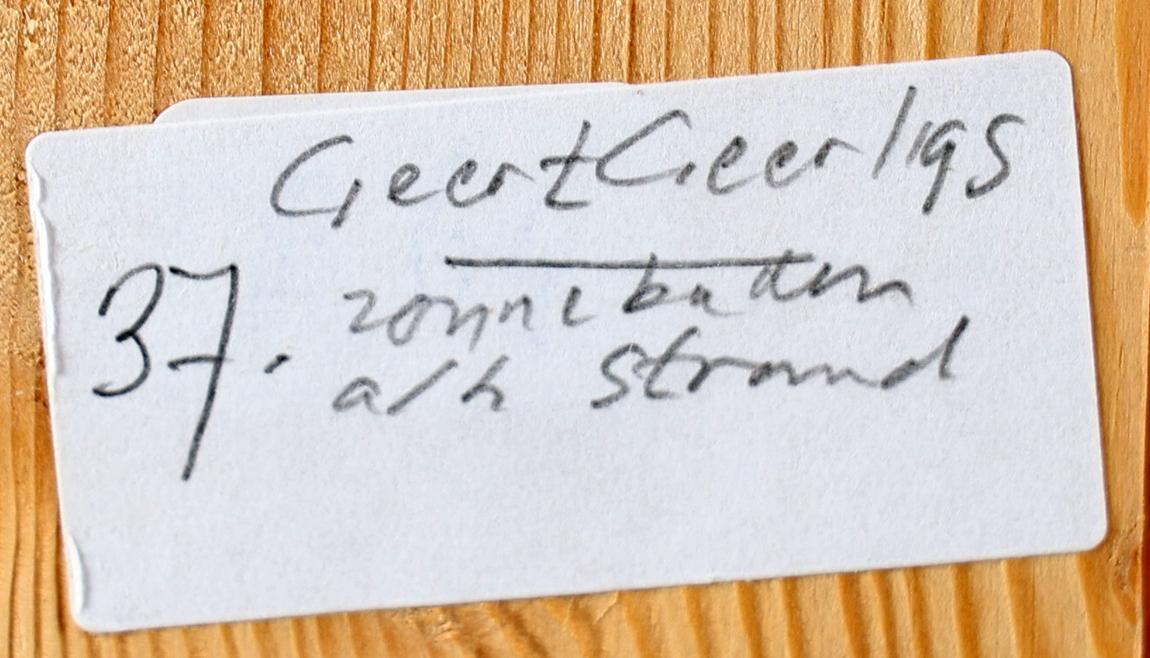 Geert Geerligs
37. zonnebaden
a/h strand